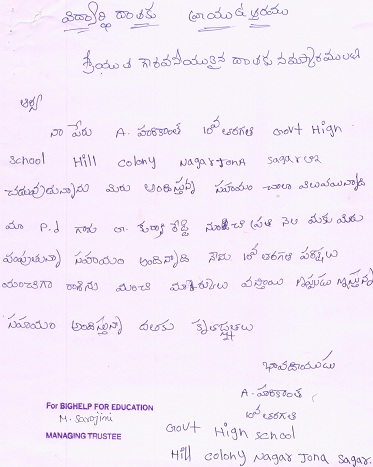 విద్యార్థి దాతకు వ్రాయు ఉత్తరము
శ్రీయుత గౌరవనీయులైన దాతకు నమస్కారములు
ఆర్య
నా పేరు A. హరికాంత్ 10వ తరగతి Govt High
School Hill Colony Nagar Jona Sagar లో
చదువుచున్నాను మీరు అందిస్తున్న సహాయం చాలా విలువయినది
మా P.d గారు రెడ్డి నుంచి ప్రతి నెల మాకు మీరు
పంపుతున్నా సహాయం అందినాది నేను 10వ తరగతి పరీక్షలు
మంచిగా రాశాను మంచి మార్కులు వస్తాయి
సహాయం అందిస్తున్నా దాతకు కృతజ్ఞతలు
A. హరికాంత్
10వ తరగతి
Govt High School
Hill Colony Nagar Jona Sagar.
For BIGHELP FOR EDUCATION
M. Sarojini
MANAGING TRUSTEE